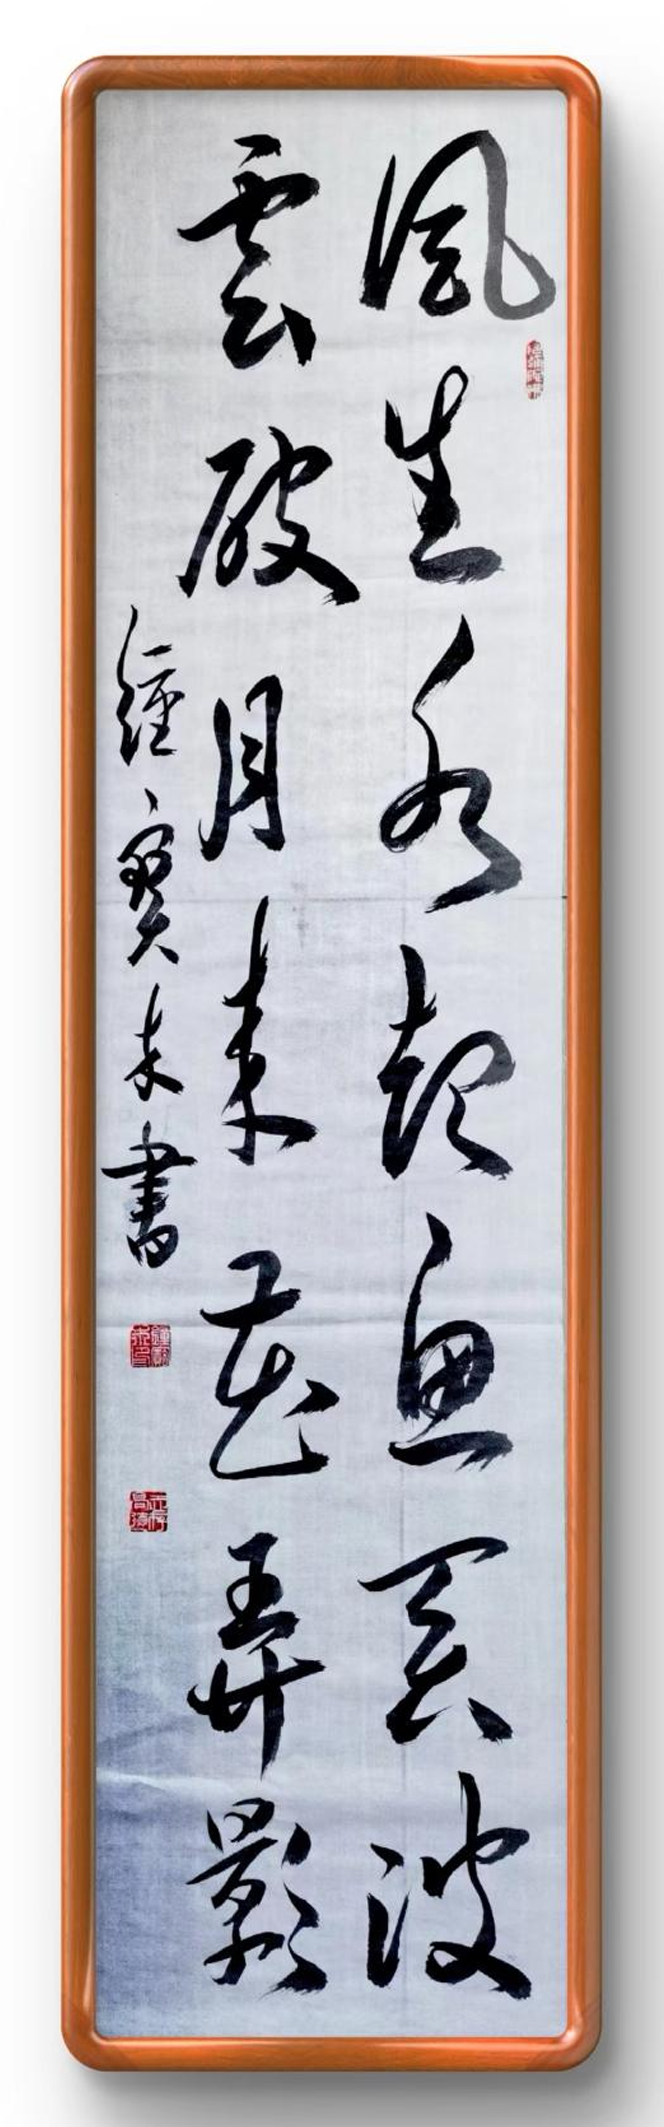 風生水起魚波
雲破月來花弄影
鍾寶書